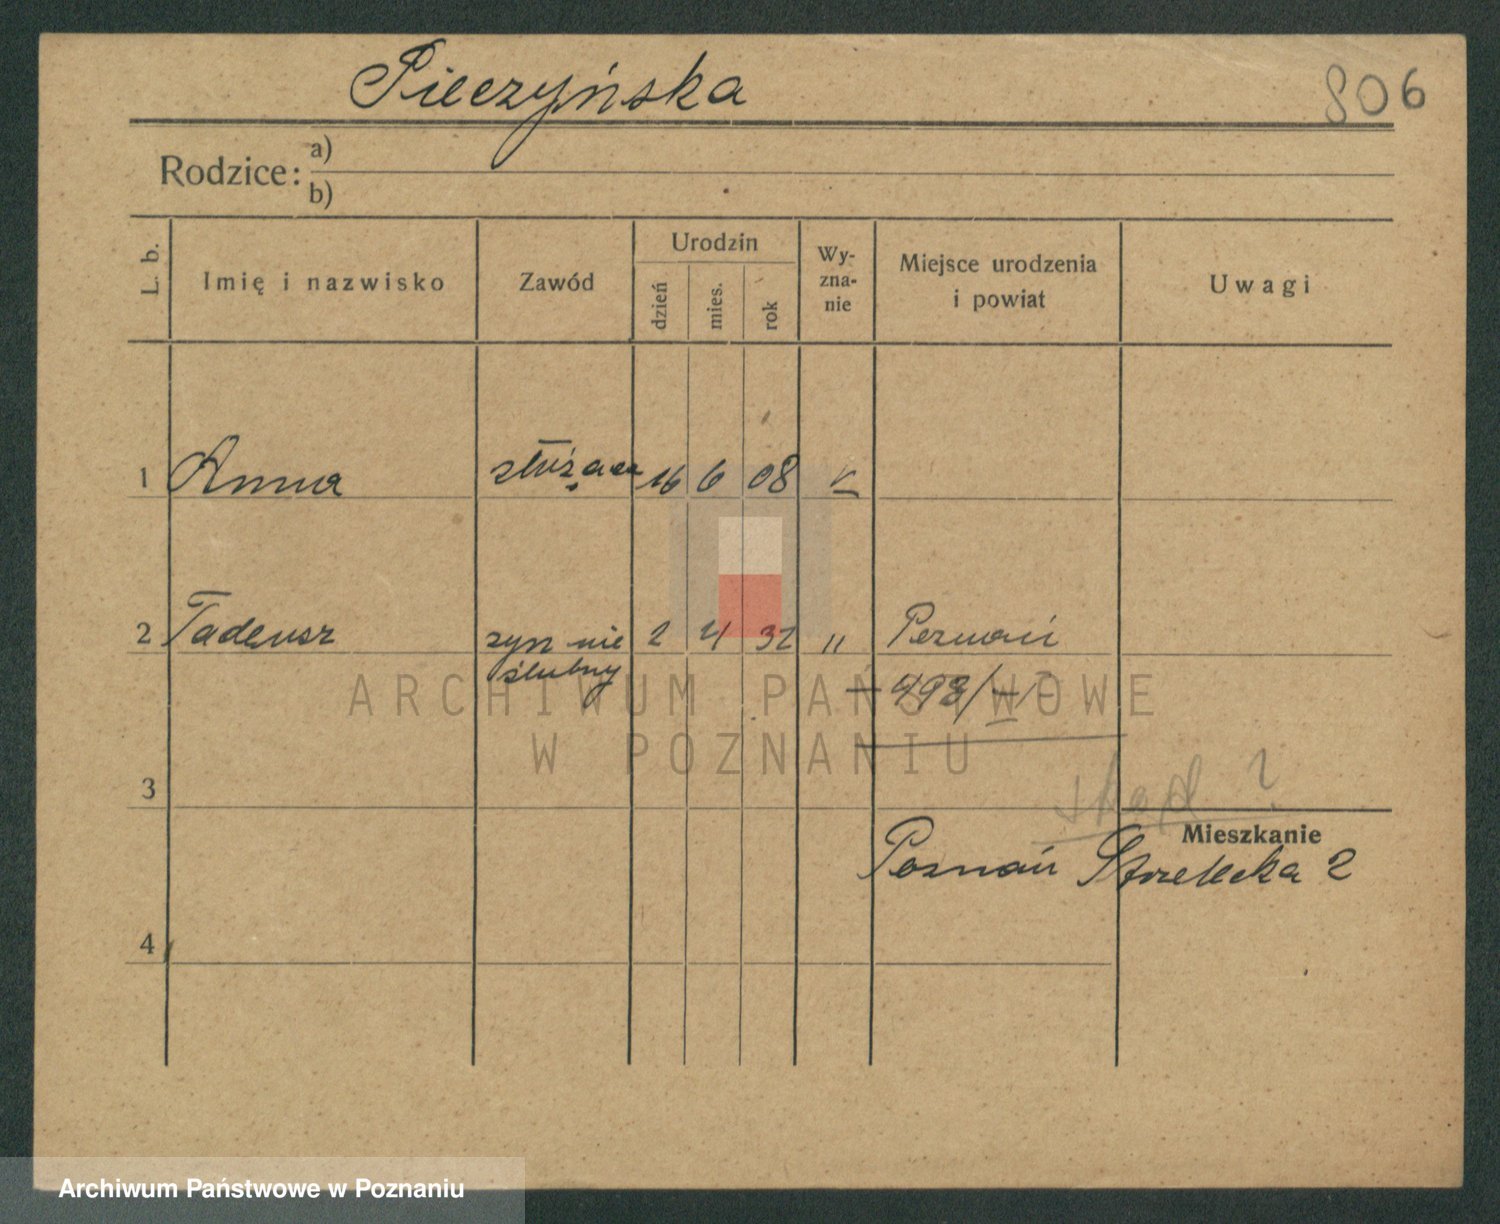 Pieczyńska
806
Rodzice: a)
b)
L. b.
Imię i nazwisko
Zawód
Urodzin
dzień
mies.
rok
Wy-
zna-
nie
Miejsce urodzenia
i powiat
Uwagi
1 Anna służąca 16 6 08 k
2 Tadeusz syn nie 2 4 32 " Poznań
ślubny
498/
3
skąd ?
Mieszkanie
Poznań Strzelecka 2
4
ARCHIWUM PAŃSTWOWE
W POZNANIU
Archiwum Państwowe w Poznaniu